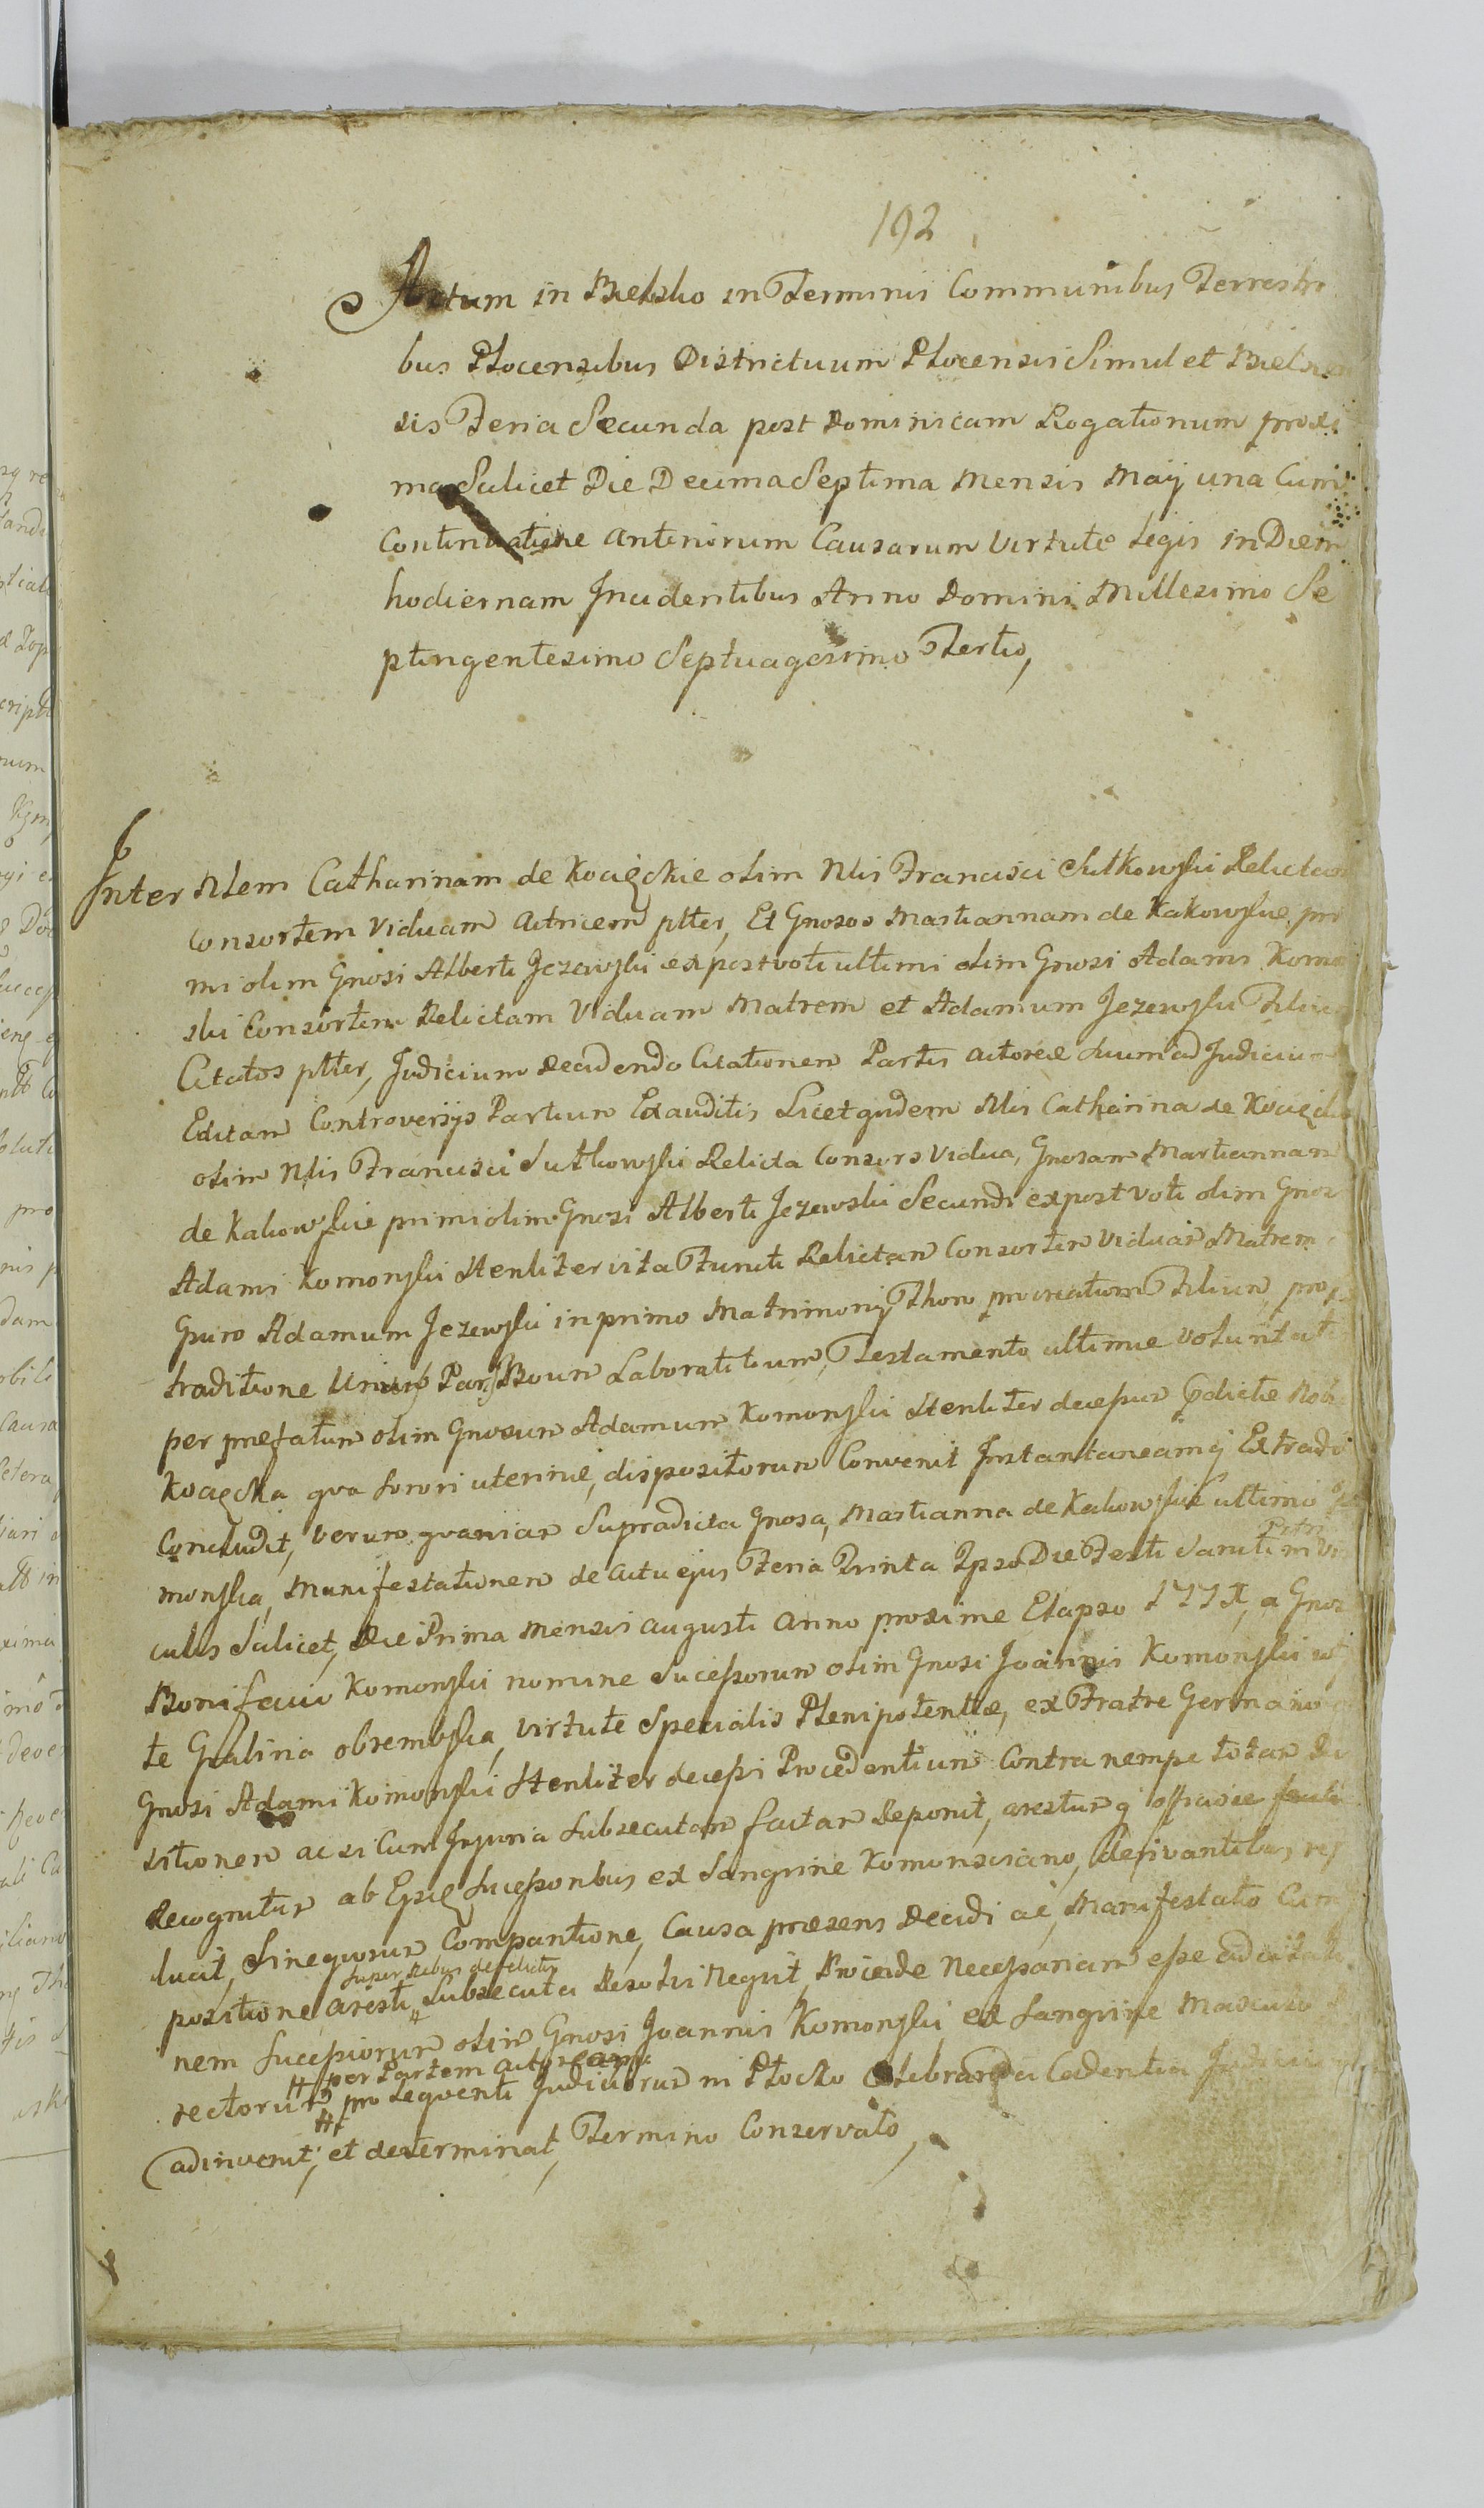 192
Actum in Bielsko in Terminis Communibus Terrestri
bus Plocensibus Districtuum Plocensis Simul et Bielsnen
sis Feria Secunda post Dominicam Rogationum proxi
ma Scilicet Die Decima Septima Mensis Maij una Cum
Continuatione anteriorum Causarum Virtute Legis in Diem
hodiernam Incidentibus Anno Domini Millesimo Se
ptingentesimo Septuagesimo Tertio,
Inter Nlem Catharinam de Kocięckie olim Nlis Francisci Sutkowski Relictam
Consortem Viduam Actricem plter, Et Gnosos Mariannam de Kakowskie pri
mi olim Gnosi Alberti Jezewski expost voti ultimi olim Gnosi Adami Komo
ski Consortem Relictam Viduam Matrem et Adamum Jezewski Filium
Citatos plter, Judicium Decidendo Citationem Partis actoreæ Suum ad Judiciu
Editam Controversijs Partium Exauditis Licet qudem Nlis Catharina de Kocięckie
olim Nlis Francisci Sutkowski Relicta Consors Vidua, Gnosam Mariannam
de Kakowskie primi olim Gnosi Alberti Jezewski Secundi expost Voti olim Gnos
Adami Komonski Stenliter vita Functi Relictam Consortem Viduam Matrem
Gnum Adamum Jezewski in primo Matrimonij Thoro procreatum Filium, pro
traditione Boum Laboratitium, Testamento ultimæ Voluntatis
per præfatum olim Gnosum Adamum Komonski Stenliter decepum dictæ Nobi
Kocięcka qva Sorori uterinæ, dispositorum Convenit Instantaneamq Extradi
Concludit, Verum qvoniam Supradicta Gnosa, Marianna de Kakowskie ultimo
monska, Manifestationem de actu ejus Feria Qvinta Ipso Die Festi Sancti Petri in Vin
culis Scilicet, Die Prima Mensis Augusti Anno proxime Elapso a Gnos
Bonifacio Komonski nomine Sucessorum olim Gnosi Joannis Komonski
te Gralina obrembska, Virtute Specialis Plenipotentiæ, ex Fratre Germano
Gnosi Adami Komonski Stenliter decepsi Procedentium Contra nempe totam
sitionem ac si Cum Injuria Subsecutam factam Deponit, arestum q
Recognitum ab Sucessoribus ex Sangvine Komonsciano, derivantibus
lucit, Sineqvorum Compartione, Causa præsens Decidi ac, Manifestatio Cum
positione aresti, Super Rebus derelictis Subsecuta Resolvi Neqvit, Proinde Necessariam esse ad citati
nem Sucessorum olim Gnosi Joannis Komonski ex Sangvine Masculo
rectorum per Partem Actoream pro Seqventi Judiciorum in Płocko Celebranda Cadentia Judicium
adinvenit, et determinat, Termino Conservato,